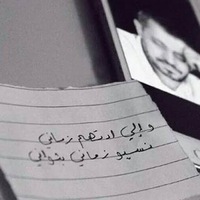 واللي اديتهم زماني
نسيو زماني بثواني